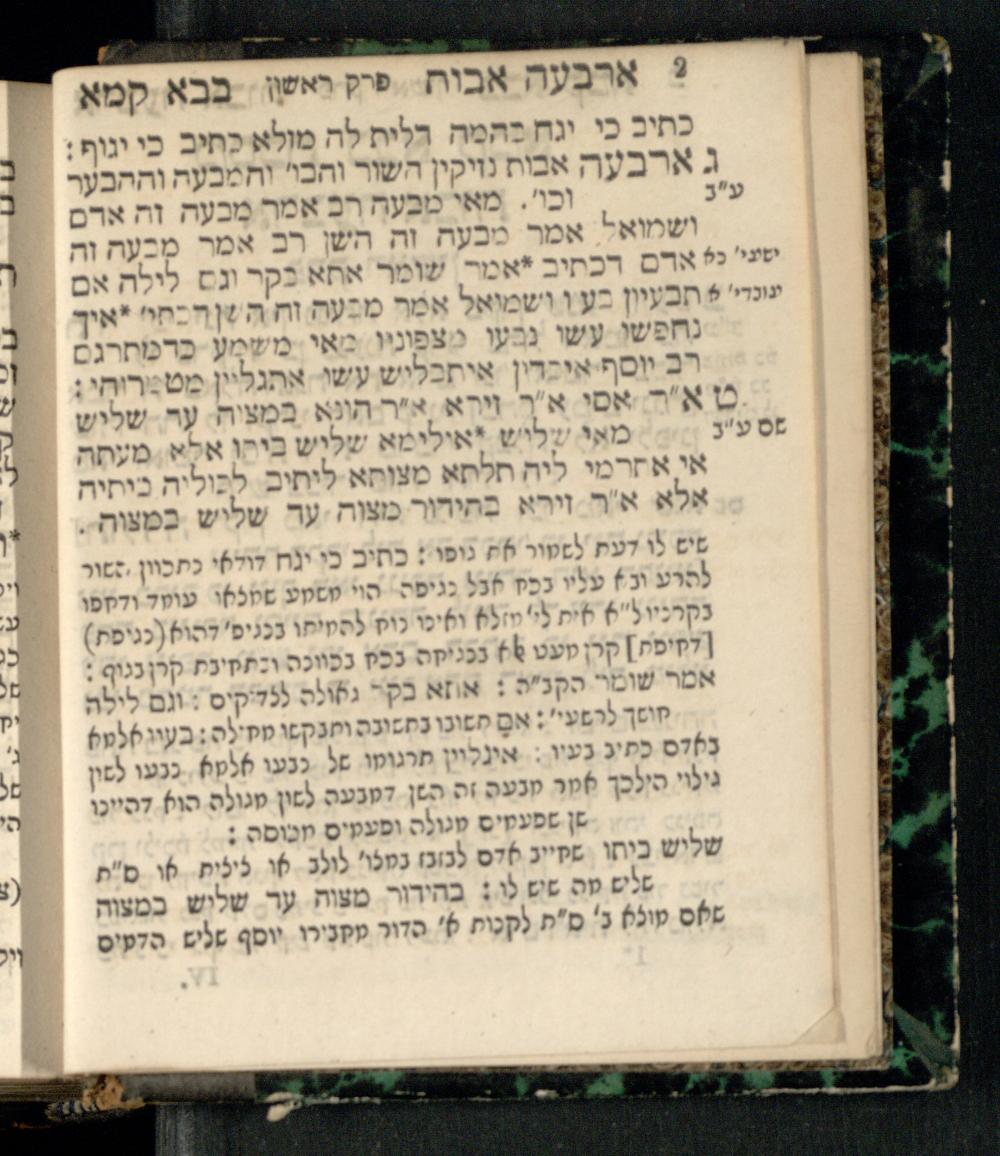 2 ארבעה אבות פרק ראשון בבא קמא
כתיב כי יגח בהמה דלית לה מזלא כתיב כי יגוף :
ג ארבעה אבות נזיקין השור והבו׳ והמבעה וההבער
ע״ב וכו׳. מאי מבעה רב אמר מבעה זה אדם
ושמואל אמר מבעה זה השן רב אמר מבעה זה
ישעי׳ כא אדם דכתיב *אמר שומר אתא בקר וגם לילה אם
עובדי׳ א תבעיון בעיו ושמואל אמר מבעה זה השן דכתי׳ *איך
נחפשו עשו נבעו מצפוניו מאי משמע כדמתרגם
רב יוסף איכדין איתבליש עשו אתגליין מטמרוהי :
ט א״ר אסי א״ר זירא א״ר הונא במצוה עד שליש
שם ע״ב מאי שליש *אילימא שליש ביתו אלא מעתה
אי אתרמי ליה תלתא מצותא ליתיב לכוליה ביתיה
אלא א״ר זירא בהידור מצוה עד שליש במצוה .
שיש לו דעת לשמור את גופו : כתיב כי יגח דודאי כתכוון השור
להרע ובא עליו בכח אבל נגיפה הוי משמע שמצאו עומד ודחפו
בקרניו ל״א אית לי׳ מזלא ואינו נוח להמיתו בנגיפ׳ דהוא (כגיפת)
[דחיפת] קרן מעט לא בנגיחה בכח בכוונה ובתחיבת קרן בגוף :
אמר שומר הקב״ה : אתא בקר גאולה לצדיקים : וגם לילה
חושך לרשעי׳ : אם תשובו בתשובה ותבקשו מחילה : בעיו אלמא
באדם כתיב בעיו : איגליין תרגומו של נבעו אלמא נבעו לשון
גילוי הילכך אמר מבעה זה השן דמבעה לשון מגולה הוא דהיינו
שן שפעמים מגולה ופעמים מכוסה :
שליש ביתו שחייב אדם לבזבז במצו׳ לולב או ציצית או ס״ת
שליש מה שיש לו : בהידור מצוה עד שליש במצוה
שאם מוצא ב׳ ס״ת לקנות א׳ הדור מחבירו יוסף שליש הדמים